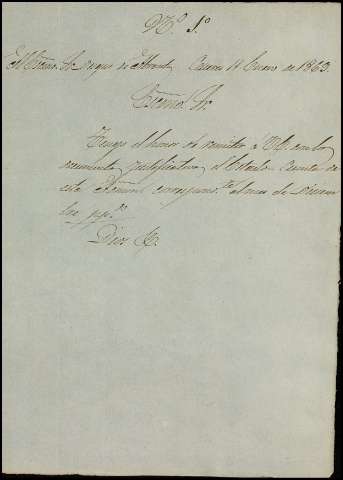 N.º 1.º
Al Excmo. Sr. Duque de Abrantes Enero 11 Enero de 1863.
Excmo. Sr.
Tengo el honor de remitir á V.E. con los
documentos justificativos el Estado Cuenta de
esta Admon. correspond.te al mes de Diciem
bre pp.do
Dios &.